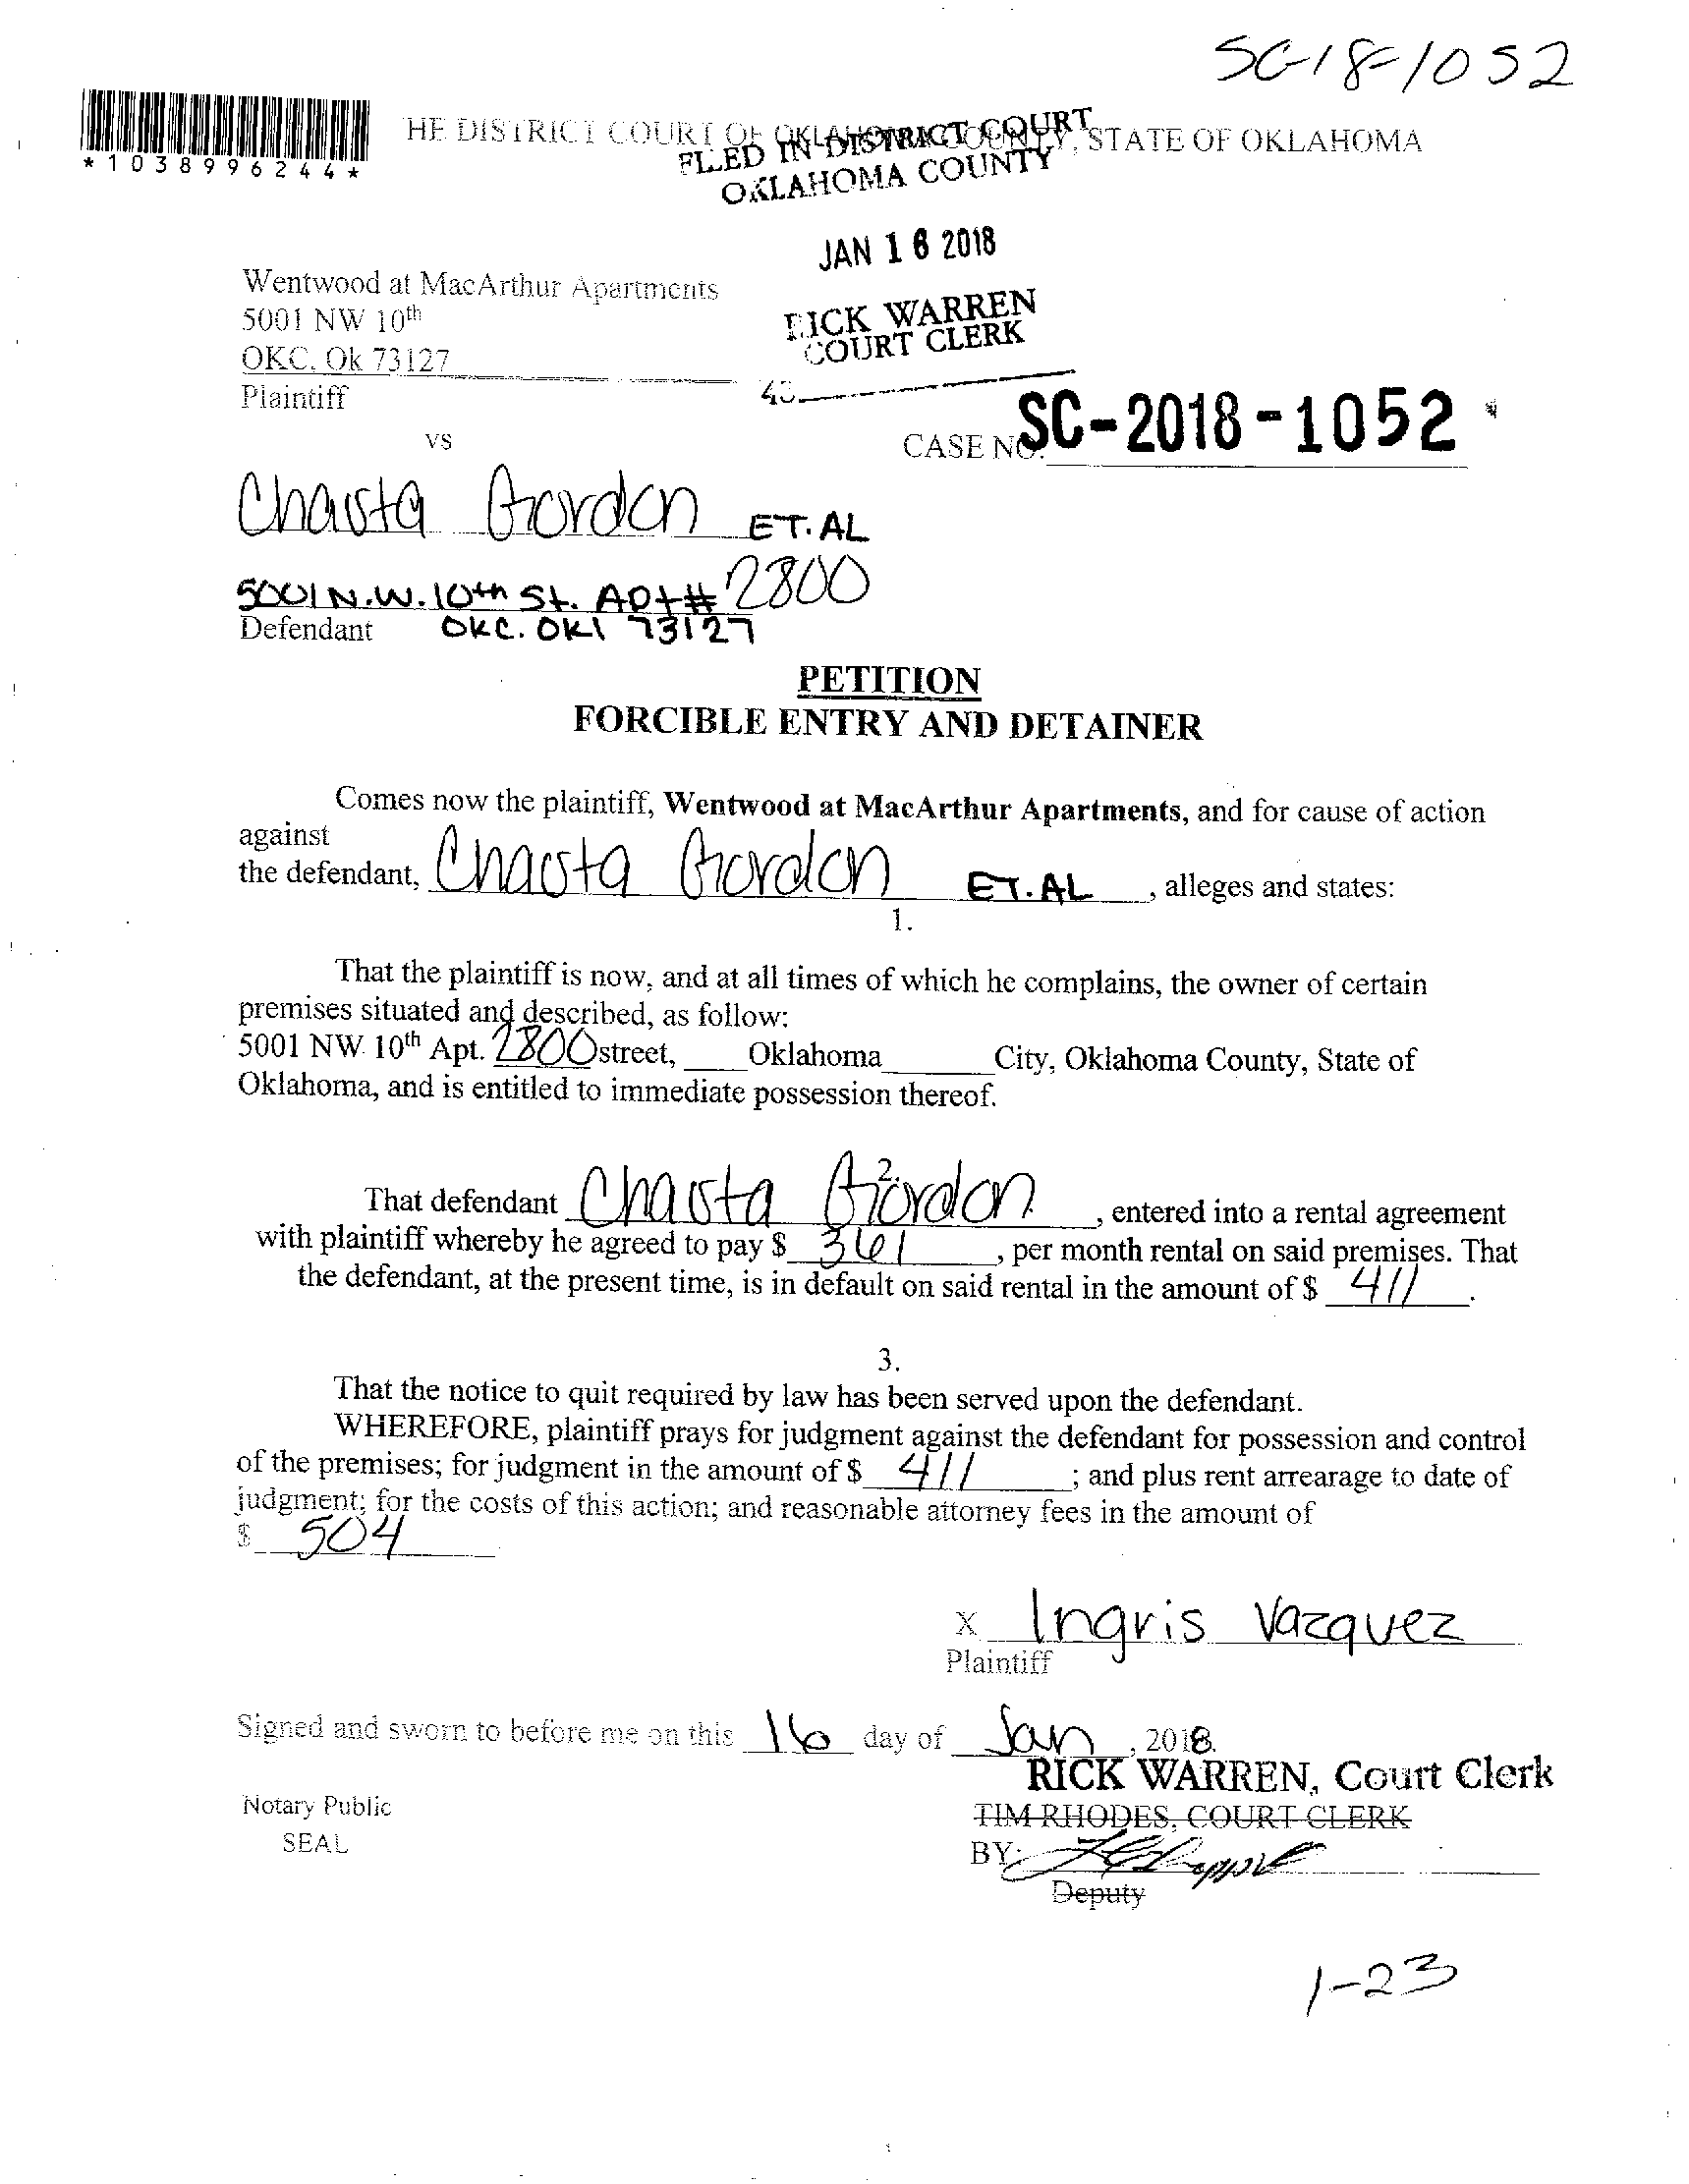 SC-18-1052
*1038996244*
HE DISTRICT COURT OF OKLAHOMA COUNTY, STATE OF OKLAHOMA
FILED IN DISTRICT COURT
OKLAHOMA COUNTY
JAN 16 2018
RICK WARREN
COURT CLERK
Wentwood at MacArthur Apartments
5001 NW 10th
OKC, Ok 73127
Plaintiff
vs
CASE NO. SC-2018-1052
Chasta Gordon ET.AL
5001 N.W. 10th St. Apt# 2800
Defendant OKC. OKl 73127
PETITION
FORCIBLE ENTRY AND DETAINER
Comes now the plaintiff, Wentwood at MacArthur Apartments, and for cause of action
against
the defendant, Chasta Gordon ET.AL, alleges and states:
1.
That the plaintiff is now, and at all times of which he complains, the owner of certain
premises situated and described, as follow:
5001 NW 10th Apt. 2800 street, Oklahoma City, Oklahoma County, State of
Oklahoma, and is entitled to immediate possession thereof.
2.
That defendant Chasta Gordon, entered into a rental agreement
with plaintiff whereby he agreed to pay $ 361, per month rental on said premises. That
the defendant, at the present time, is in default on said rental in the amount of $ 411.
3.
That the notice to quit required by law has been served upon the defendant.
WHEREFORE, plaintiff prays for judgment against the defendant for possession and control
of the premises; for judgment in the amount of $ 411; and plus rent arrearage to date of
judgment; for the costs of this action; and reasonable attorney fees in the amount of
$ 504
X Ingris Vazquez
Plaintiff
Signed and sworn to before me on this 16 day of Jan, 2018.
RICK WARREN, Court Clerk
Notary Public
TIM RHODES, COURT CLERK
SEAL
BY:
Deputy
1-23